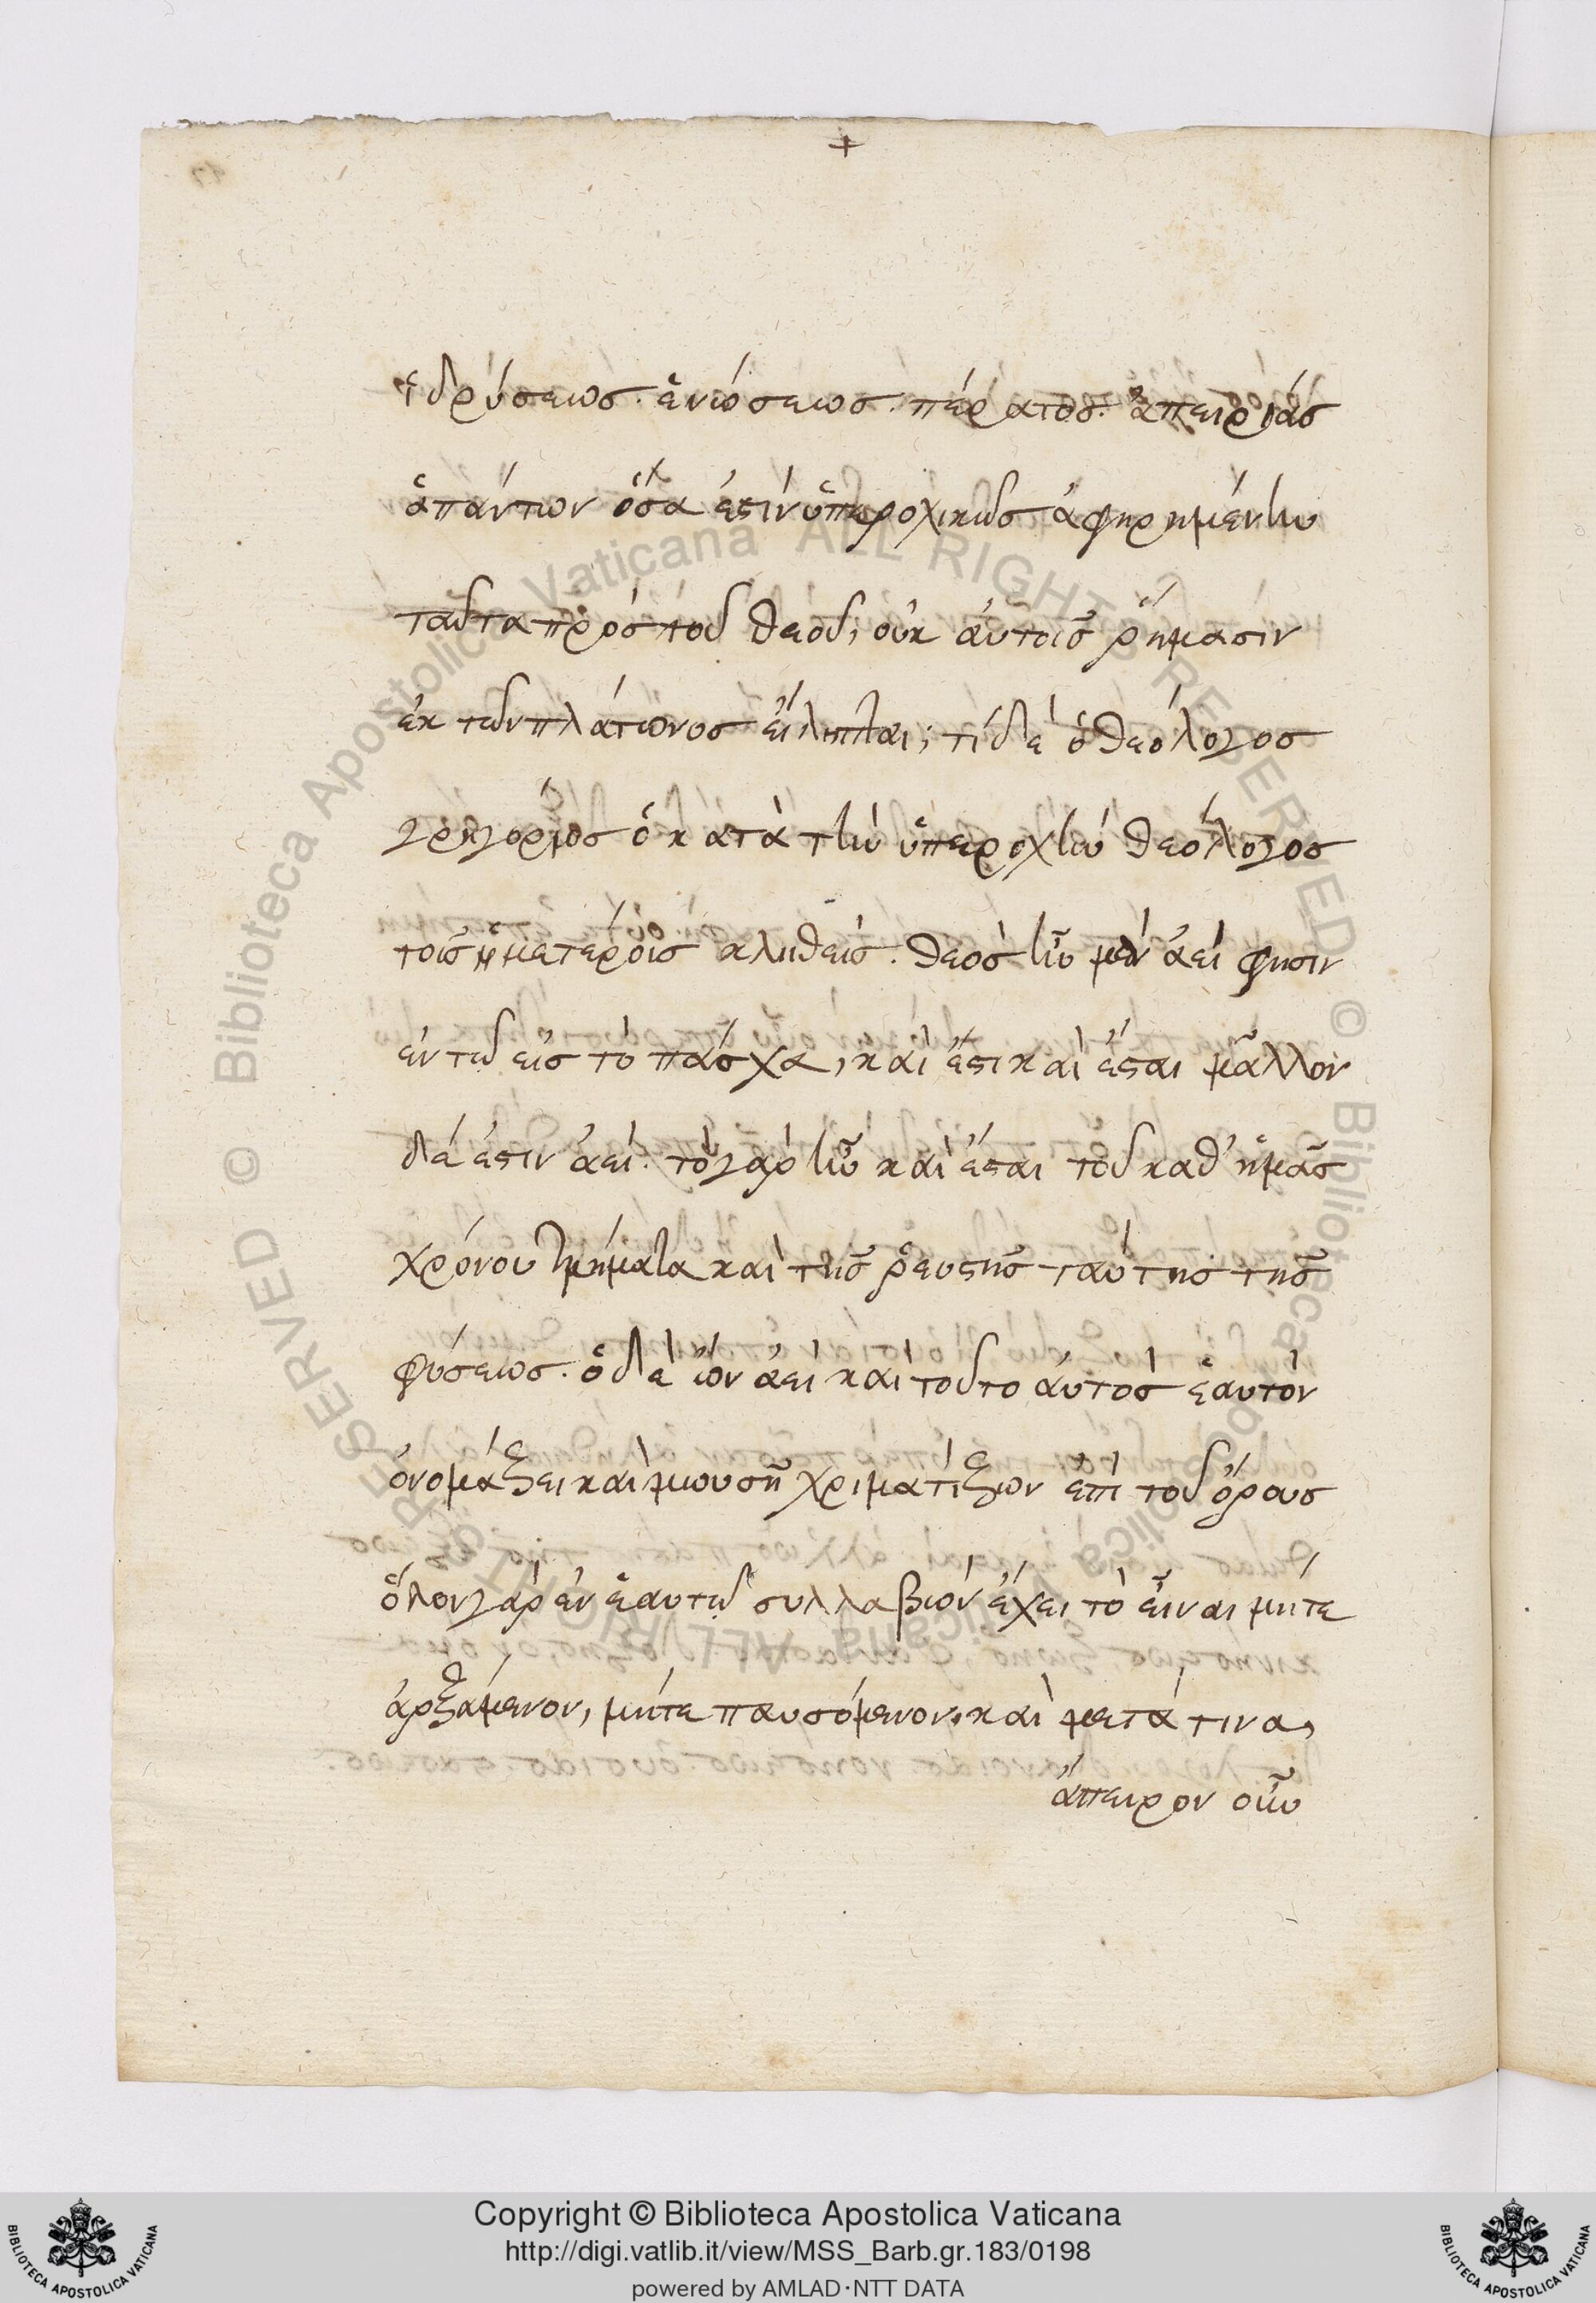 +
ἱδρύσεως. ἑνώσεως. πέρατος. ἀπειρίας
ἁπάντων ὅσα ἐστὶν ὑπεροχικῶς ἀφῃρημένην
ταῦτα πρὸς τοῦ θεοῦ, οὐκ αὐτοῖς ῥήμασιν
ἐκ τῶν πλάτωνος εἴληπται; τί δὲ ὁ θεολόγος
γρηγόριος ὁ κατὰ τὴν ὑπεροχὴν θεόλογος
τοῖς ἡμετέροις κληθείς. θεὸς ἦν μὲν ἀεὶ φησιν
ἐν τῷ εἰς τὸ πάσχα, καὶ ἔστι καὶ ἔσται μᾶλλον
δέ ἐστιν ἀεί. τὸ γὰρ ἦν καὶ ἔσται τοῦ καθ' ἡμᾶς
χρόνου τμήματα καὶ τῆς ῥευστῆς ταύτης τῆς
φύσεως. ὁ δὲ ὢν ἀεὶ καὶ τοῦτο αὐτὸς ἑαυτὸν
ὀνομάζει καὶ μωυσῆ χριματίζων ἐπὶ τοῦ ὄρους
ὅλον γὰρ ἐν ἑαυτῷ συλλαβὼν ἔχει τὸ εἶναι μήτε
ἀρξάμενον, μήτε παυσόμενον. καὶ μετά τινα,
ἄπειρον οὖν
Copyright © Biblioteca Apostolica Vaticana
http://digi.vatlib.it/view/MSS_Barb.gr.183/0198
powered by AMLAD·NTT DATA